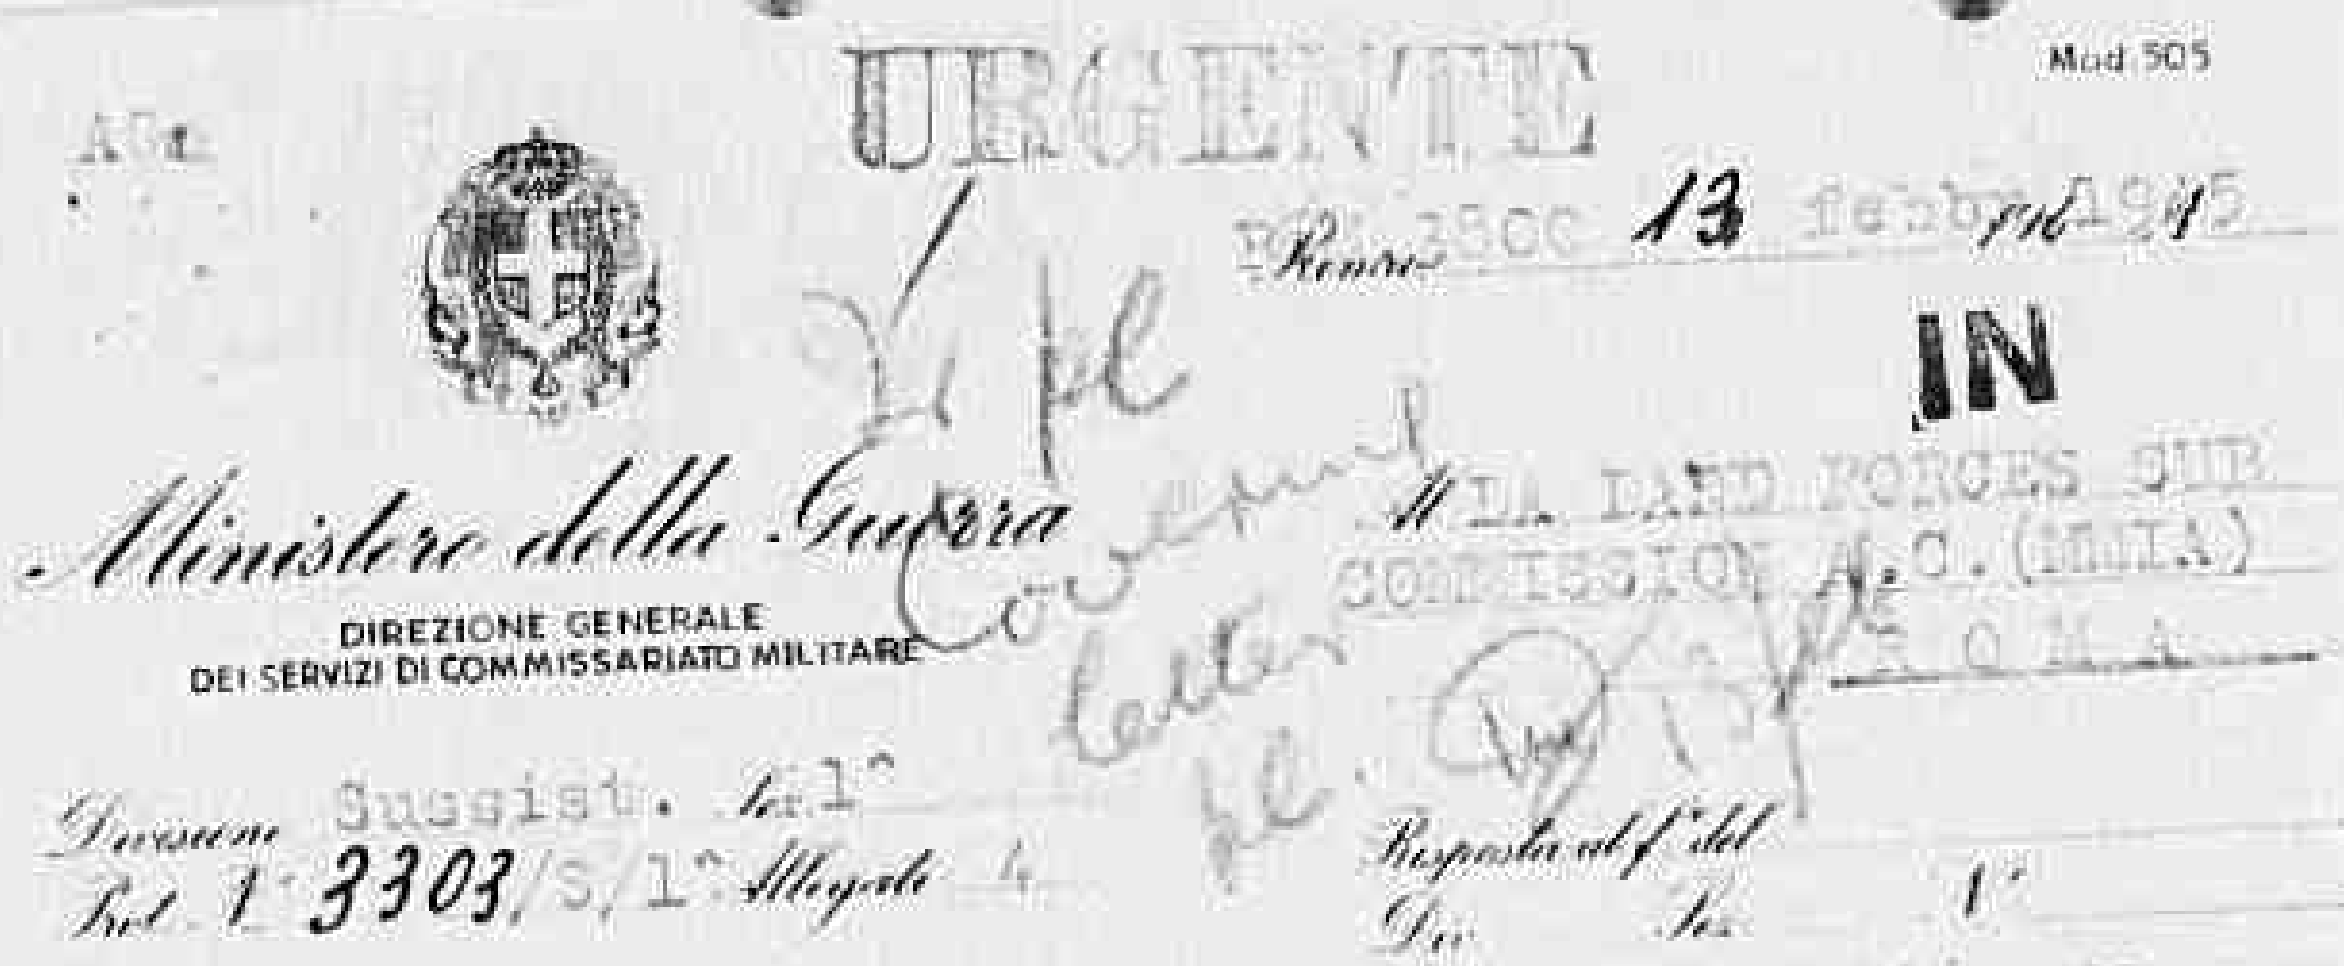 URGENTE
Mod. 505
Roma 3800 13 febbr. 1945
IN
Ministero della Guerra
DIREZIONE GENERALE
DEI SERVIZI DI COMMISSARIATO MILITARE
All LA LAND FORCES SUB
COMMISSION A.C. (MMIA)
R O M A
Divisione Sussist. Sez. 1^
Prot. N° 3303/S/1^ Allegati 4
Risposta al f° del
Div. Sez. N°